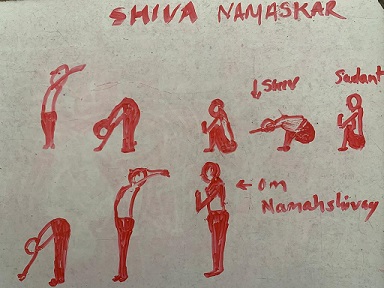 SHIVA NAMASKAR
↓ Shiv
Sadant
← Om
Namahshivay